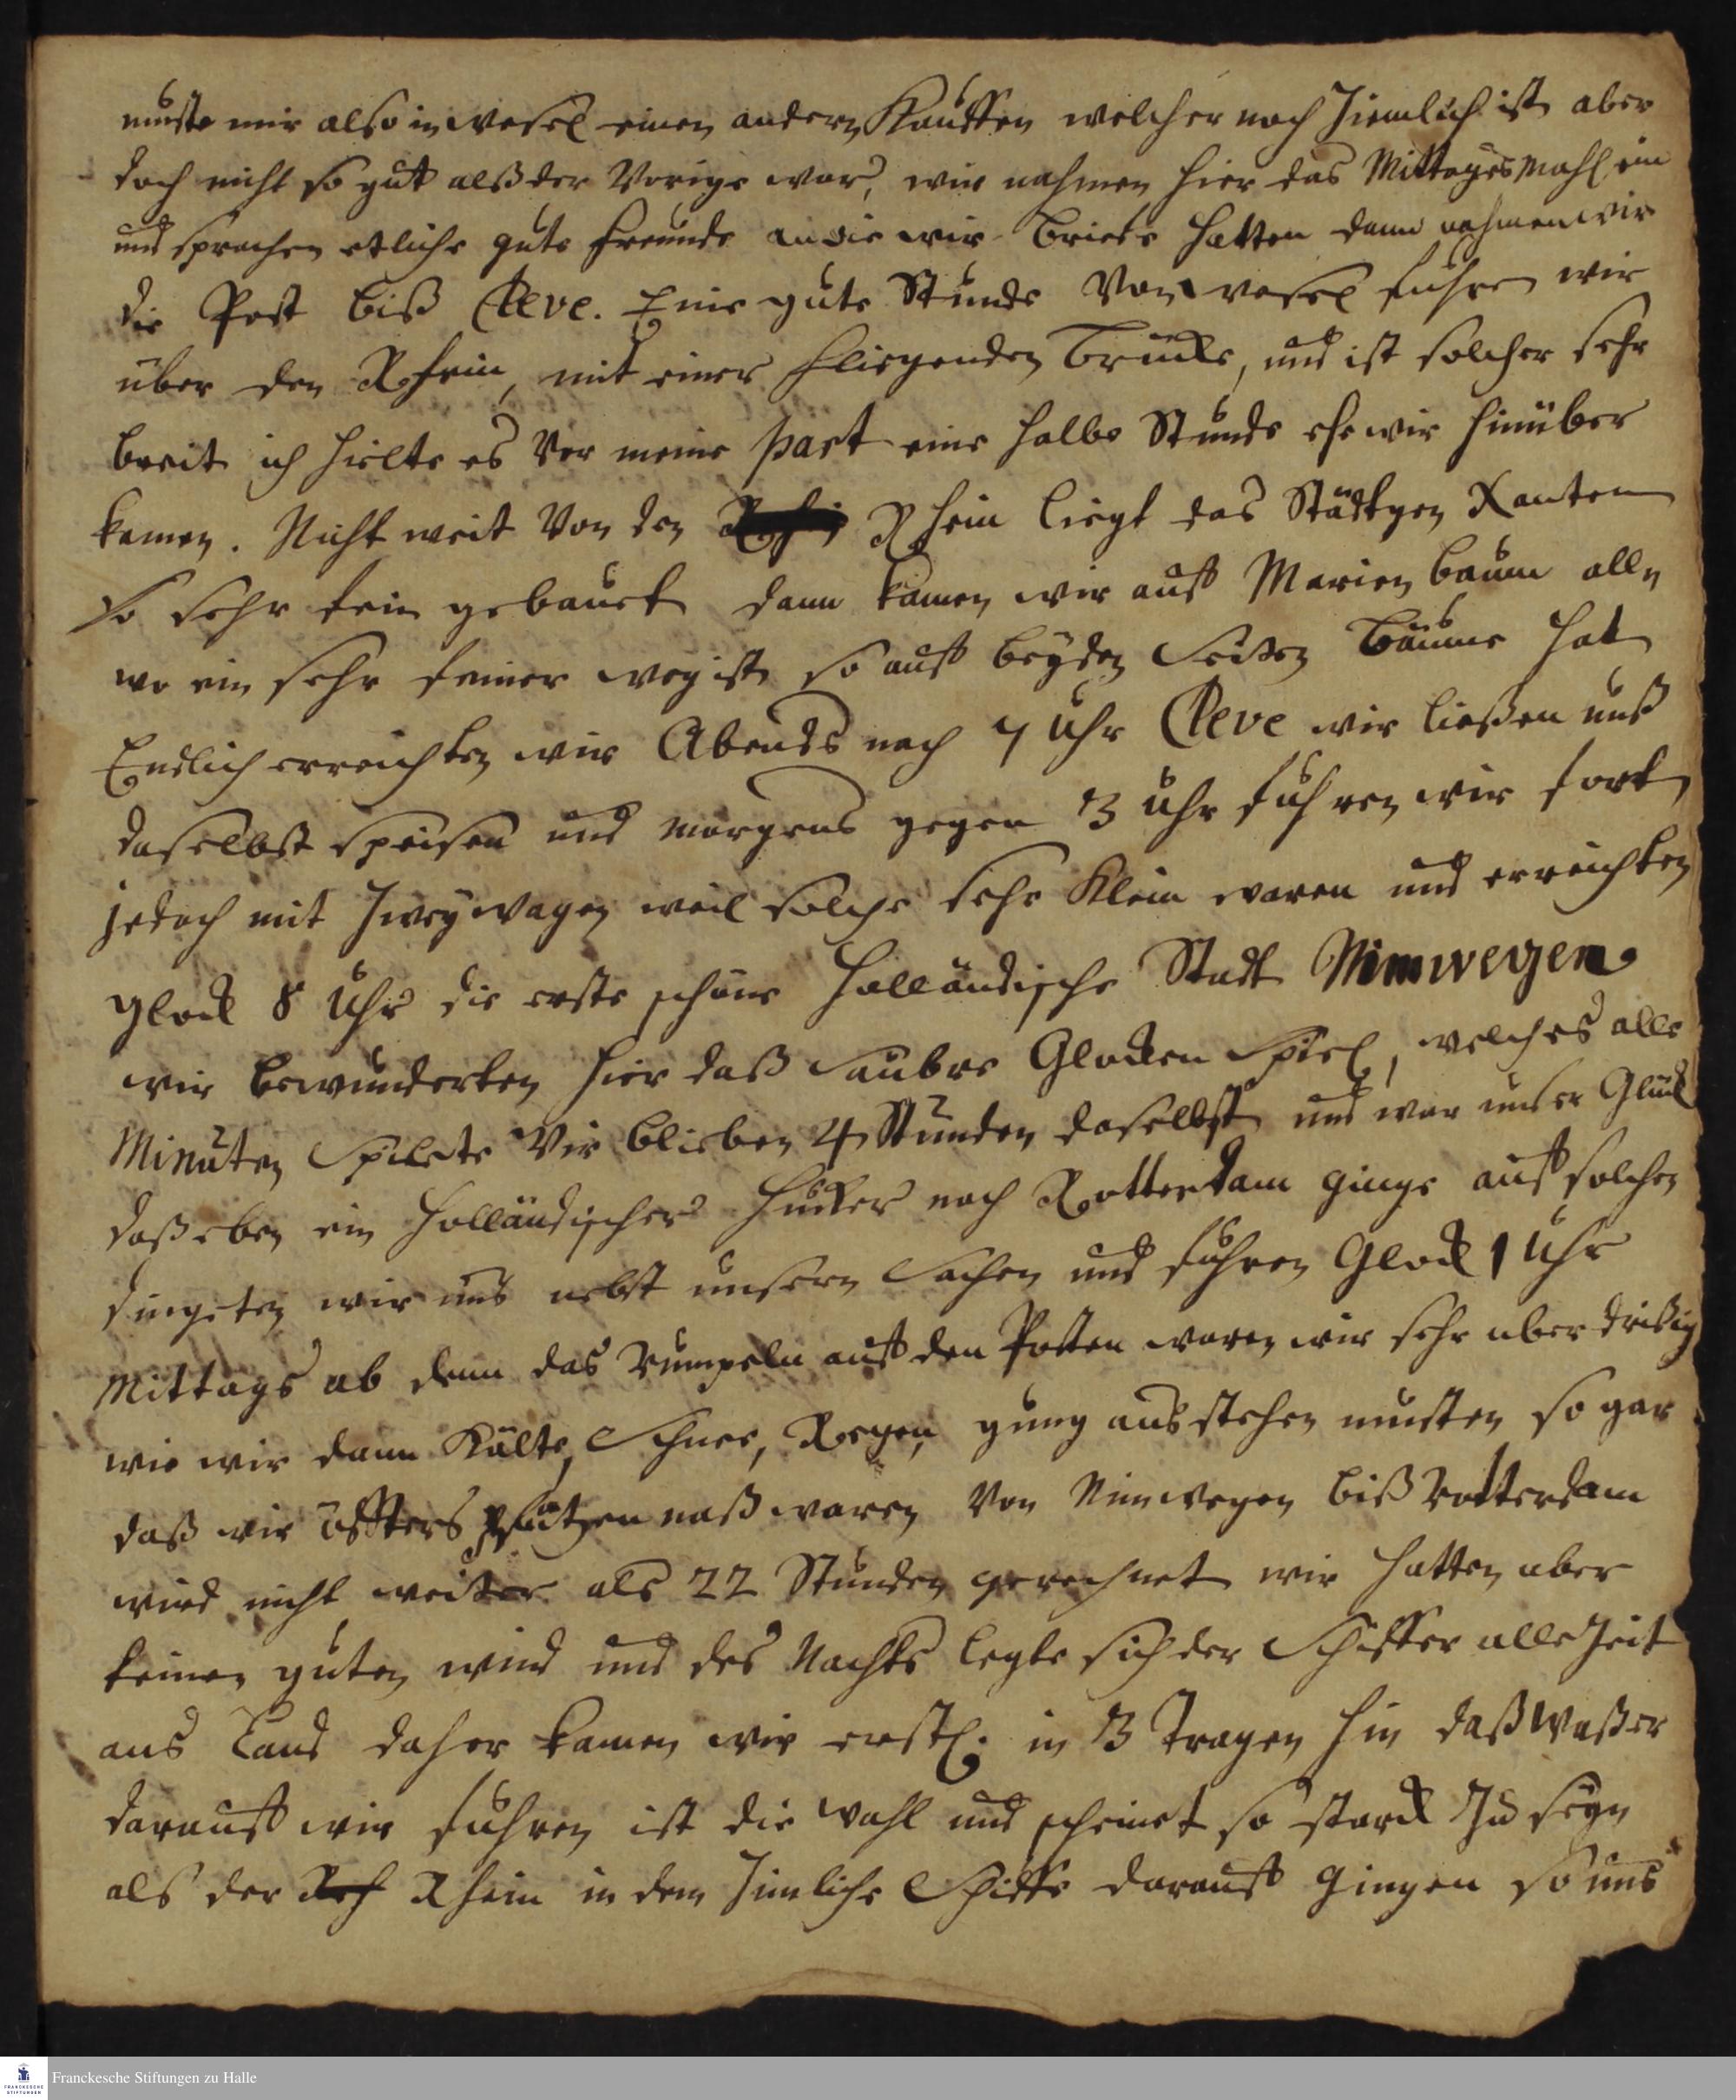 muste mir also in wesel einen andern Kauffen welcher noch Ziemlich ist aber
doch nicht so gut alß der Vorige war, wir nahmen hier das Mittages Mahl ein
und sprachen etliche gute freunde an die wir briefe hatten dann nahmen wir
die Post biß Cleve. Eine gute Stunde Von wesel fuhren wir
über den Rhein, mit einer fliegenden brücke, und ist solcher sehr
breit ich hielte es Vor meine part eine halbe Stunde ehe wir hinüber
kamen. Nicht weit Von den Rhein liegt das Städtgen Xanten
so sehr fein gebauet dann kamen wir auff Marien baum all
wo ein sehr feiner weg ist so auff beyden Seiten bäume hat
Endlich erreichten wir Abends nach 7 Uhr Cleve wir ließen unß
daselbst speisen und morgens gegen 3 Uhr fuhren wir fort
jedoch mit Zwey wagen weil solche sehr Klein waren und erreichten
glock 8 Uhr die erste schöne Holländische Stadt Nimwegen
wir bewunderten hier daß Saubre Glocken Spiel, welches alle
Minuten Spielete Wir blieben 4 Stunden daselbst und war unser Glück
daß eben ein Holländischer Hucker nach Rotterdam ginge auff solchen
dingeten wir uns nebst unsern Sachen und fuhren Glock 1 Uhr
Mittags ab denn das rumpeln auff den Posten waren wir sehr uber drißig
wie wir dann Kälte, Schnee, Regen, gnug ausstehen musten so gar
daß wir öffters pfützen naß waren Von Nimwegen biß Rotterdam
wird nicht weiter als 22 Stunden gerechnet wir hatten aber
keinen guten wind und des Nachts legte sich der Schiffer alle Zeit
ans Land daher kamen wir erstl. in 3 Tragen hin daß Waßer
darauff wir fuhren ist die Wahl und scheinet so starck Zu seyn
als der Reh Rhein in dem Zimliche Schiffe darauff gingen so uns
Franckesche Stiftungen zu Halle
FRANCKESCHE
STIFTUNGEN